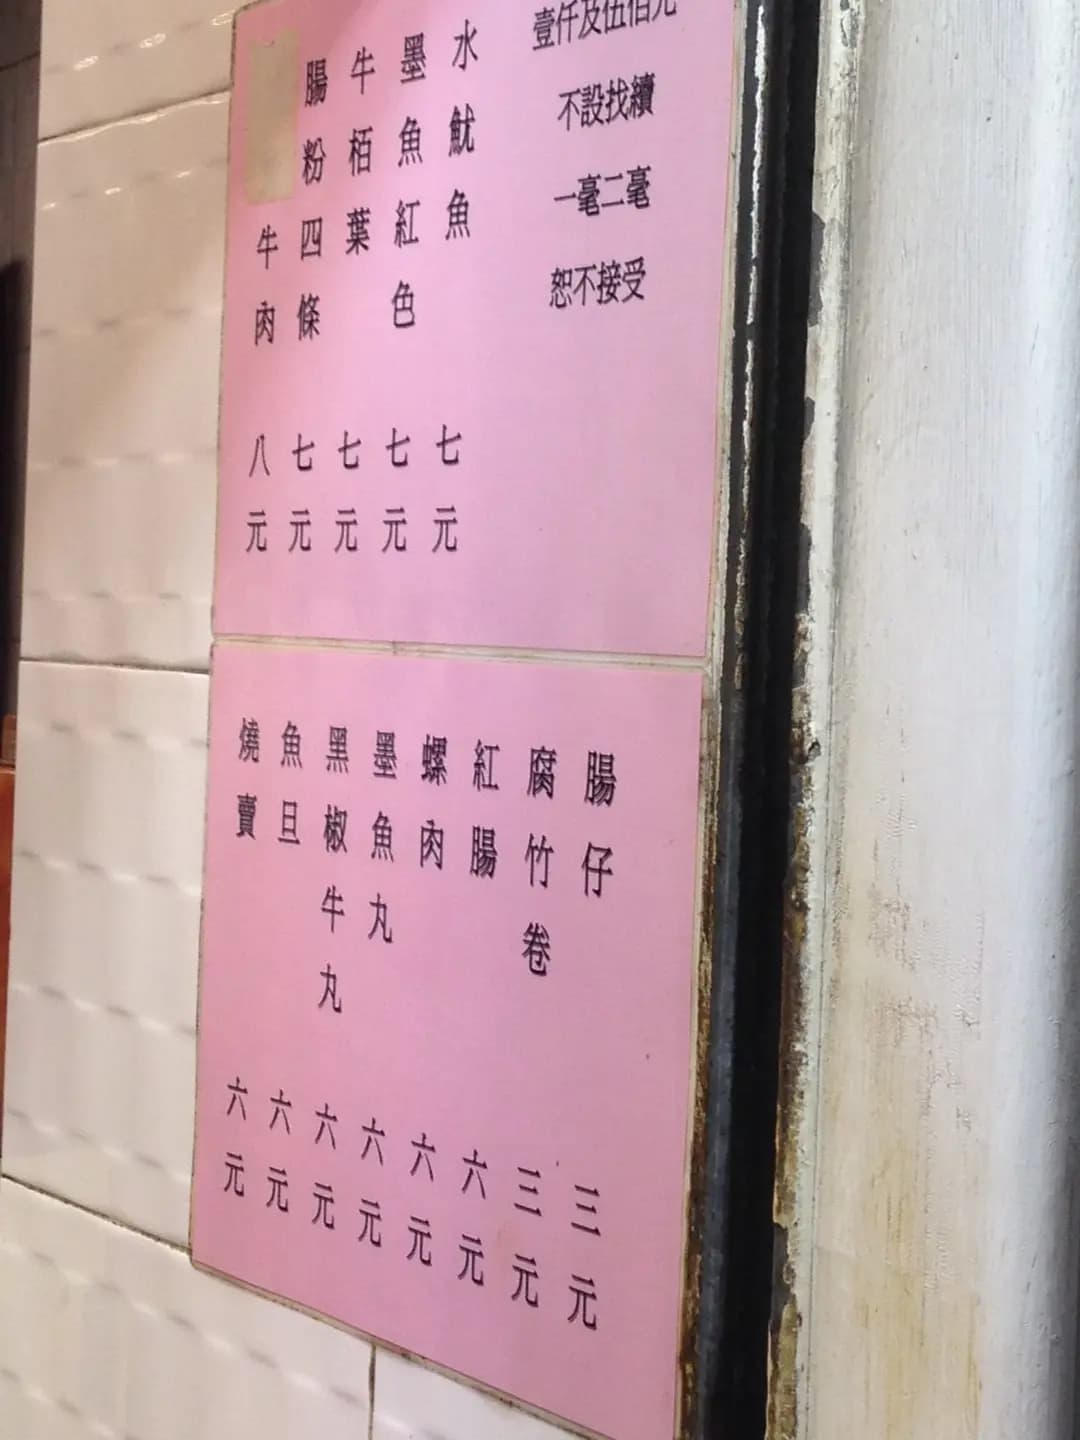 壹仟及伍佰元
不設找續
一毫二毫
恕不接受
水魷魚 七元
墨魚紅色 七元
牛栢葉 七元
腸粉四條 七元
牛肉 八元
腸仔 三元
腐竹卷 三元
紅腸 六元
螺肉 六元
墨魚丸 六元
黑椒牛丸 六元
魚旦 六元
燒賣 六元